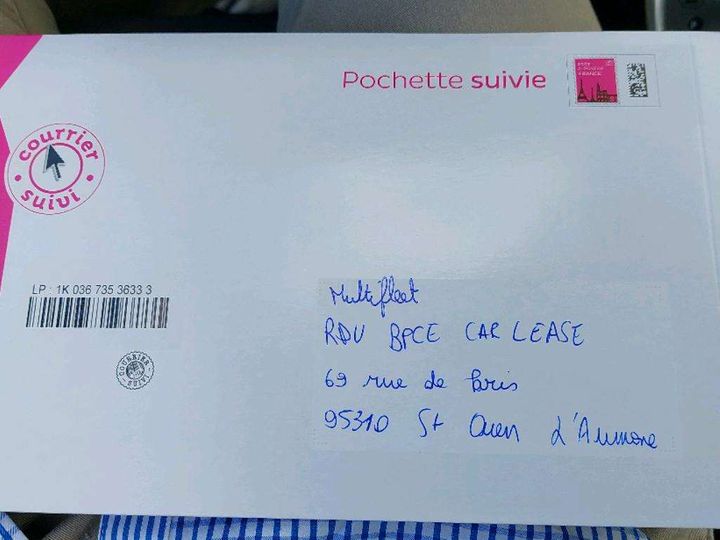 Pochette suivie
FRANCE
courrier
suivi
LP : 1K 036 735 3633 3
COURRIER
SUIVI
Multifleet
RDV BPCE CAR LEASE
69 rue de Paris
95310 St Ouen L'Aumone